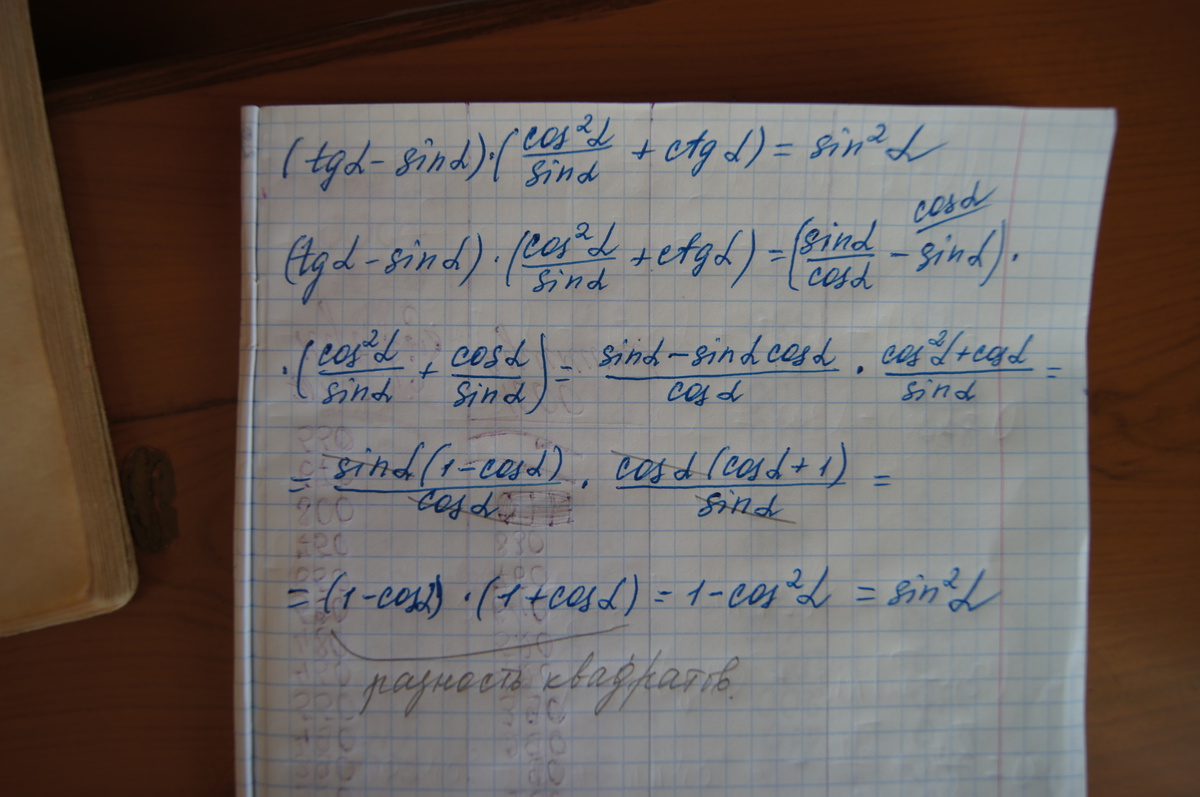 (tgα - sinα)·(cos²α/sinα + ctgα) = sin²α
(tgα - sinα)·(cos²α/sinα + ctgα) = (sinα/cosα - sinα)· cosα
·(cos²α/sinα + cosα/sinα) = (sinα - sinα cosα)/cosα · (cos²α + cosα)/sinα =
= sinα(1 - cosα)/cosα · cosα(cosα + 1)/sinα =
= (1 - cosα)·(1 + cosα) = 1 - cos²α = sin²α
разность квадратов.